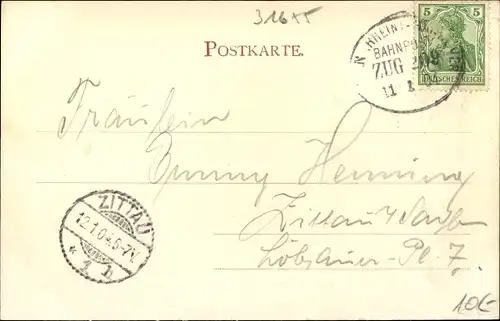 316
POSTKARTE.
RHEINE-
BAHNPOST
ZUG
11 1
5 5
DEUTSCHES REICH
Fräulein
Henning
Zittau i/ Sachsen
Löbauer-Pl. 7.
ZITTAU
12.1.04.6-7V.
* 1 b
10€